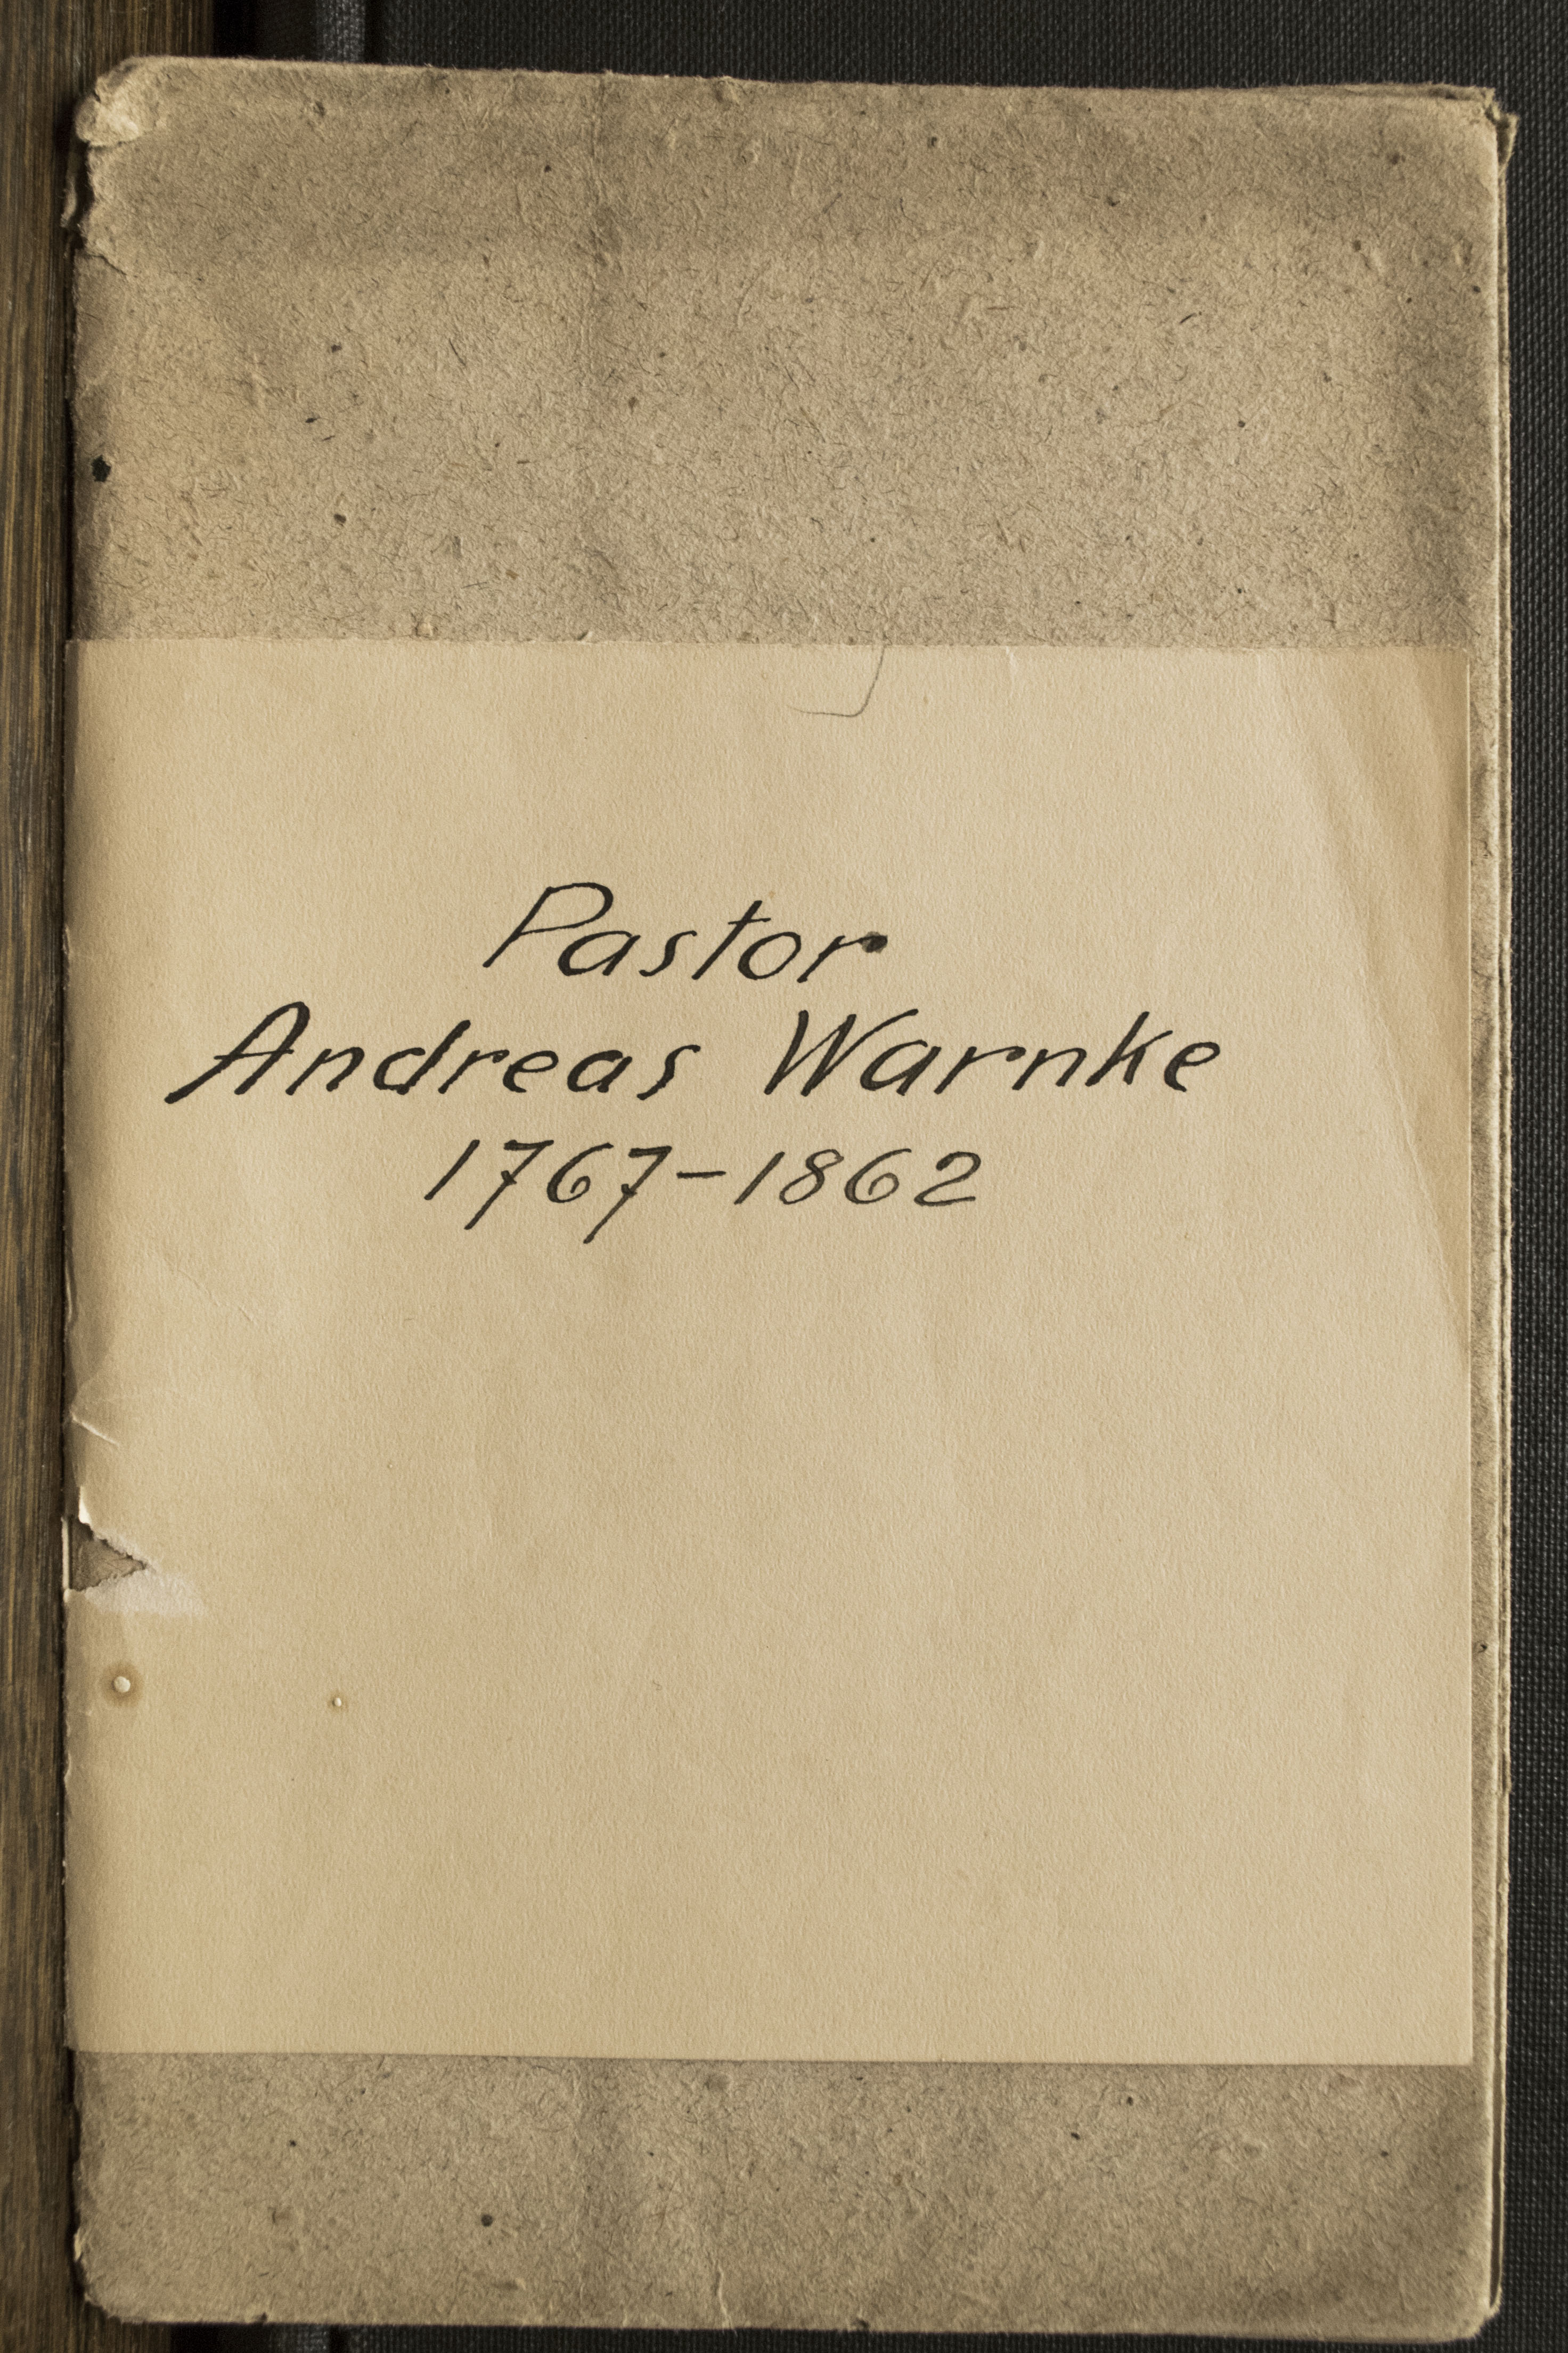 Pastor
Andreas Warnke
1767-1862